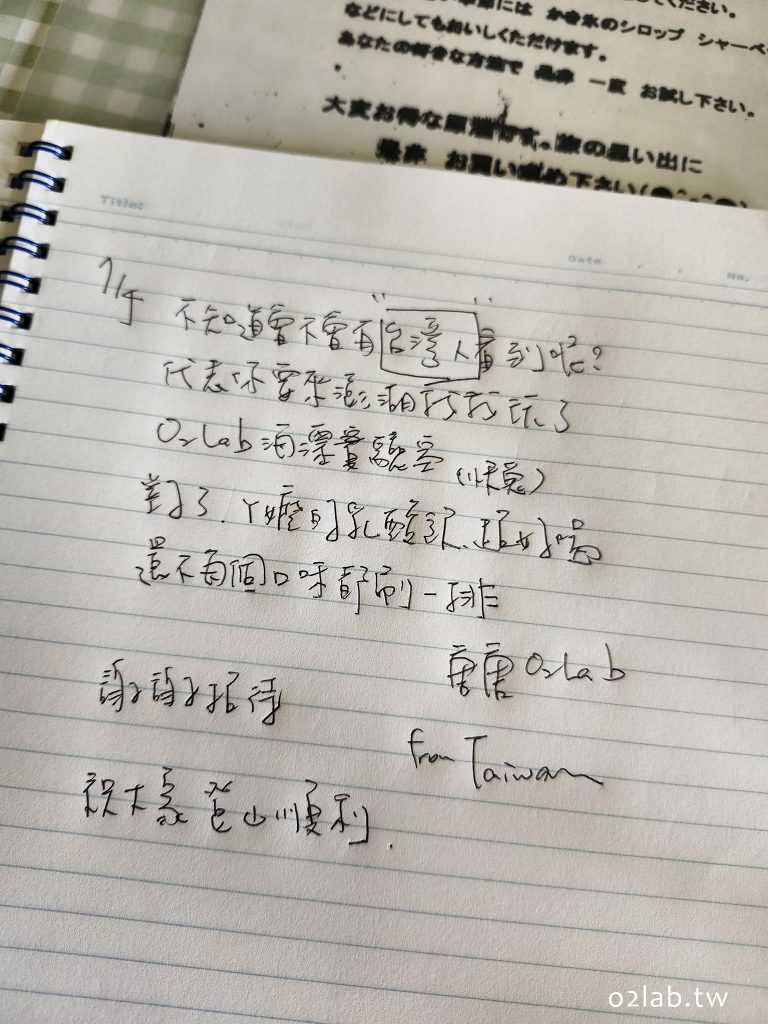 には かき氷のシロップ シャーベ
などにしてもおいしくただけます。
あなたの好きな方法で 是非 一度 お試し下さい。
大変お得な原液です。旅の思い出に
是非 お買い求め下さい(
Title:
Date
No.
不知道會不會有"台灣人"看到呢?
代表你要來
玩了
O2Lab海漂實驗室
對了.ㄚ嬤的乳酸 超好喝
還不每個口味都刷一排
唐唐 O2Lab
謝謝招待
from Taiwan
祝大家登山順利.
o2lab.tw